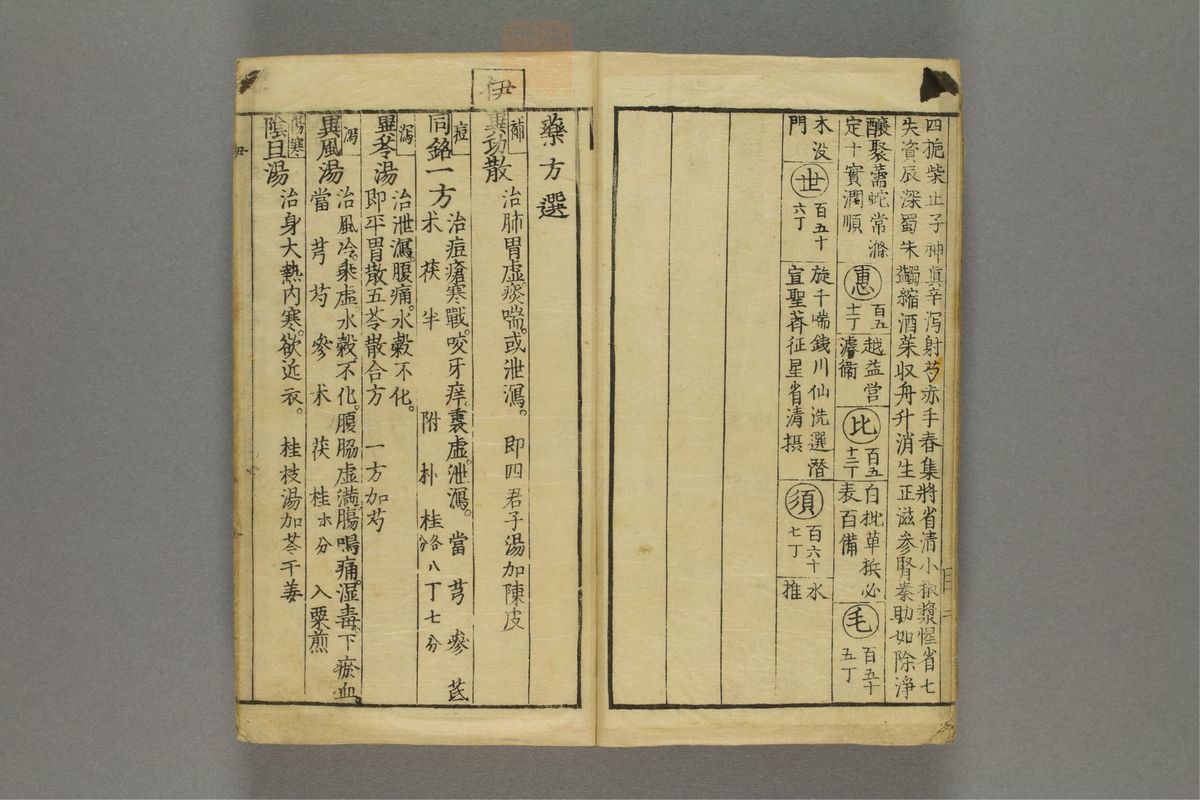 四梔柴止子神眞辛泻射芍赤手春集將省清小椒漿惺省七
失資辰深蜀朱蠲縮酒菜収舟升消生正滋参腎秦助如除淨
釀聚薷蛇常滌
定十實潤順
惠
百五
十一丁
越益営
濬衛
比
百五
十二丁
白枇草檳必
表百備
毛
百五十
五丁
木没
門
世
百五十
六丁
旋千喘銭川仙洗選潜
宣聖蒋征星省清撰
須
百六十
七丁
水
推
伊
藥方選
補
異功散
治肺胃虚痰喘。或泄瀉。即四君子湯加陳皮
痘
同銘一方
治痘瘡寒戰。咬牙痒。裏虚泄瀉。當芎參芪
术茯半附朴桂各八丁七分
泻
異苓湯
治泄瀉。腹痛。水穀不化。
即平胃散五苓散合方 一方加芍
泻
異風湯
治風冷。乘虚。水穀不化。腹脇虚満。腸鳴痛。湿毒下瘀血。
當芎芍參术茯桂 入粟煎
傷寒
陰旦湯
治身大熱内寒。欲近衣。 桂枝湯加芩干姜